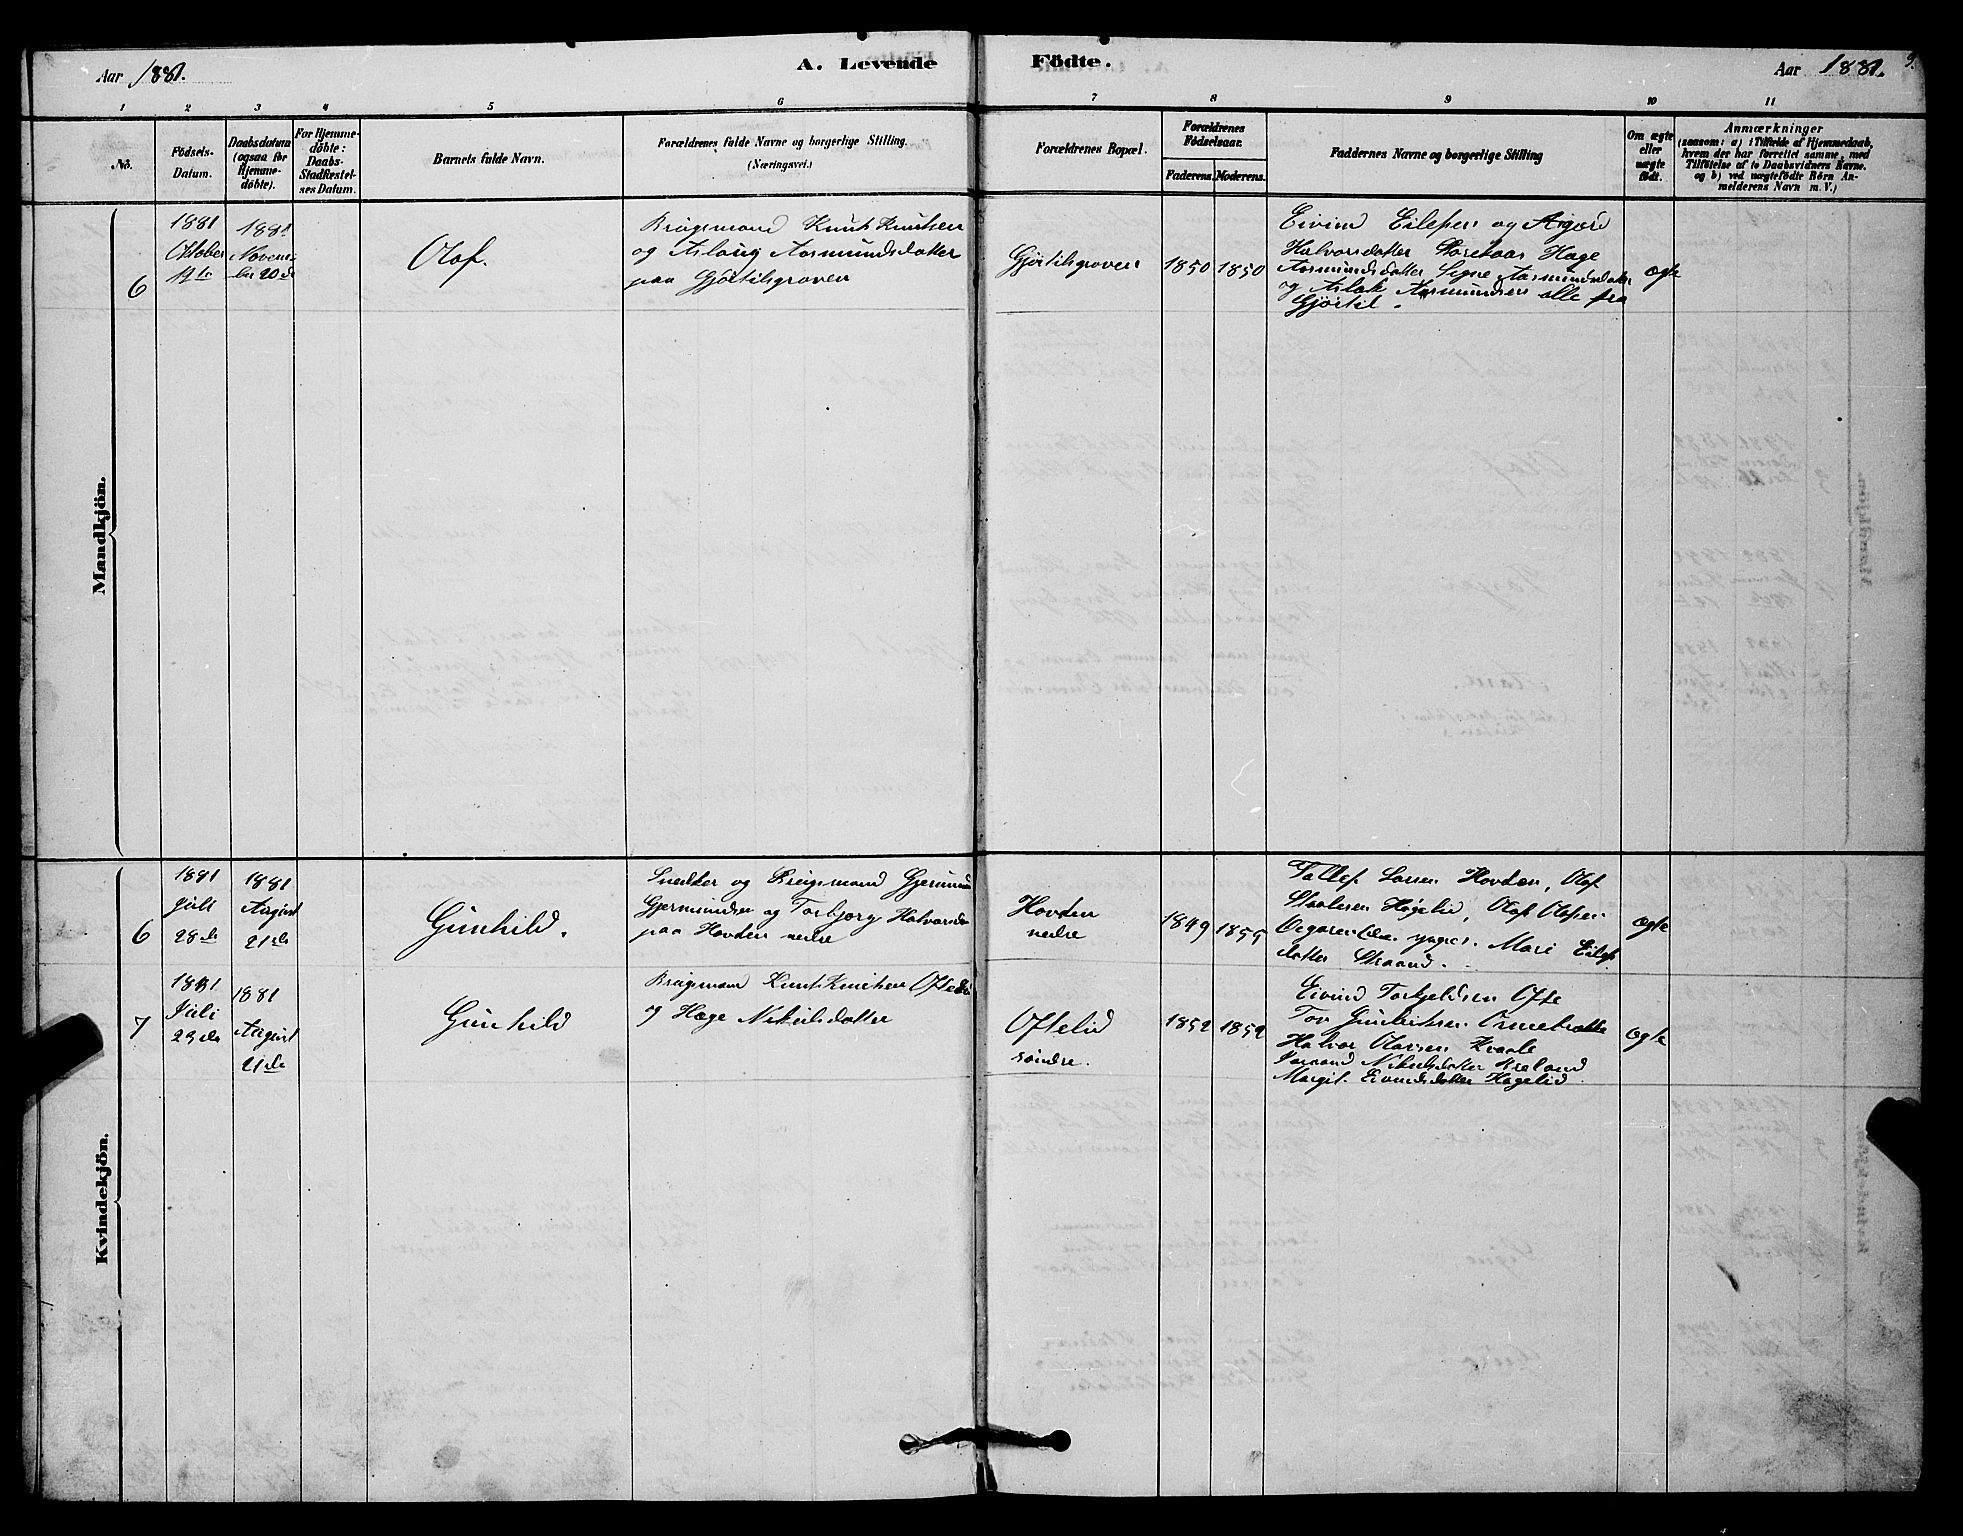 Aar 1881.
A. Levende
Födte.
Aar 1881.
9.
1 2 3 4 5 6 7 8 9 10 11
No.
Födsels-
Datum.
Daabsdatum
(ogsaa for
Hjemme-
döbte).
For Hjemme-
döbte:
Daabs-
Stadfæstel-
ses Datum.
Barnets fulde Navn.
Forældrenes fulde Navne og borgerlige Stilling.
(Næringsvei.)
Forældrenes Bopæl.
Forældrenes
Födselsaar.
Faderens. Moderens.
Faddernes Navne og borgerlige Stilling
Om ægte
eller
uægte
født.
Anmærkninger
(saasom: a) i Tilfælde af Hjemmedaab,
hvem der har forrettet samme, med
Tilföielse af to Daabsvidners Navne.
og b) ved uægtefödte Børn An-
melderens Navn m. V.)
Mandkjön.
6
1881
Oktober
1881
Novem-
ber 20de
Olof.
Brugsmand Knut Knutsen
og Aslaug Aasmundsdatter
paa Gjöitilsgroven
Gjöitilsgroven
1850
1850
Eivind Eilefsen og
Halvorsdatter Hage
Aasmundsdatter Signe Aasmundsdater
og Aslak Aasmundsen alle fra
Gjöitil.
ægte
Kvindekjön.
6
1881
Juli
28de
1881
August
21de
Gunhild.
Snedker og Brugsmand Gjermund
Gjermundsen og Torbjorg Halvorsda
paa Hovden nedre
Hovden
nedre
1849
1855
Tallef Larsen Hovden, Olof
Staalesen Högelid, Olof Olofsen
yngre. Mari Eilefs
datter Straand.
ægte
7
1881
Juli
29de
1881
August
21de
Gunhild
Brugsmand Knut Knutsen Oftelid
og Hage Nikulsdatter
Oftelid
söndre.
1852
1852
Eivind Torkjeldsen Ofte
Tov Gunleiksen
Halvor Olavsen Kvaale
Nikulsdatter
Margit Eivindsdatter Högelid
ægte